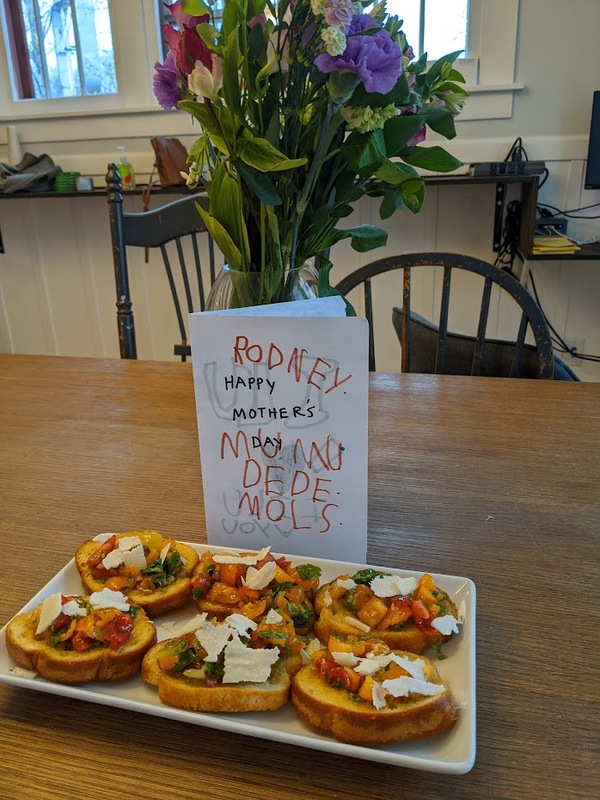 RODNEY.
HAPPY
MOTHER'S
DAY
MUMU
DEDE.
MOLS.